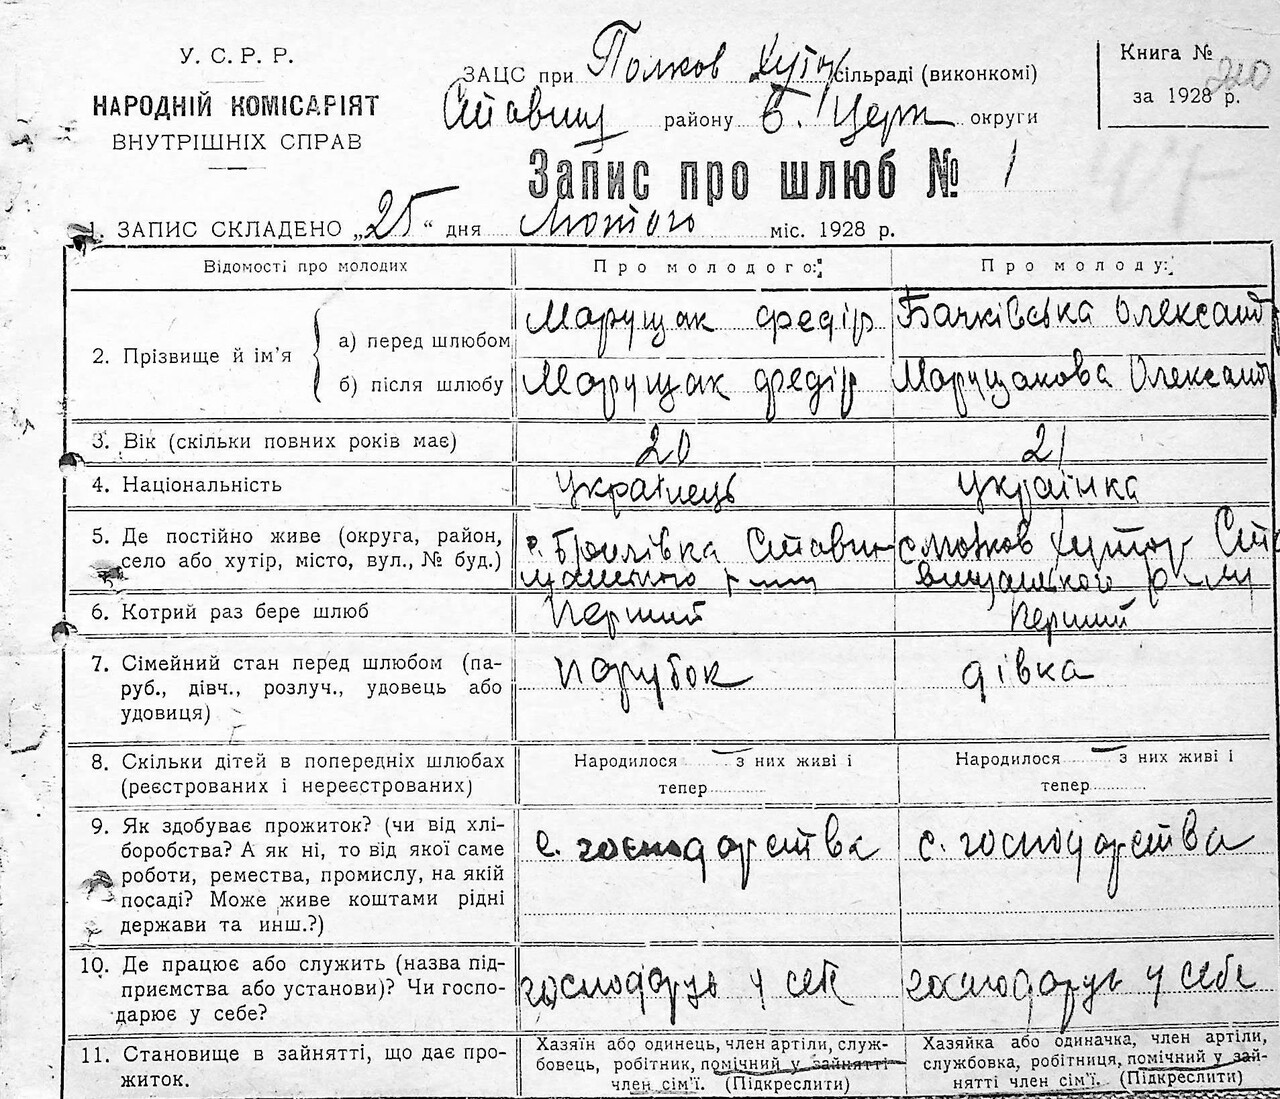 У. С. Р. Р.
НАРОДНІЙ КОМІСАРІЯТ
ВНУТРІШНІХ СПРАВ
ЗАЦС при Полков Хутор сільраді (виконкомі)
Ставищ району Б. Церк округи
Книга №
210
за 1928 р.
Запис про шлюб № 1
47
1. ЗАПИС СКЛАДЕНО „25“ дня Лютого міс. 1928 р.
Відомості про молодих
Про молодого:
Про молоду:
2. Прізвище й ім’я
а) перед шлюбом
Марущак Федір
Бачківська Олександ
б) після шлюбу
Марущак Федір
Марущакова Олександ
3. Вік (скільки повних років має)
20
21
4. Національність
Українець
Українка
5. Де постійно живе (округа, район,
село або хутір, місто, вул., № буд.)
Стави
щанського р-ну
Хутор Ст
вищанського р-ну
6. Котрий раз бере шлюб
Перший
Перший
7. Сімейний стан перед шлюбом (па-
руб., дівч., розлуч., удовець або
удовиця)
парубок
дівка
8. Скільки дітей в попередніх шлюбах
(реєстрованих і нереєстрованих)
Народилося — з них живі і
тепер
Народилося — з них живі і
тепер
9. Як здобуває прожиток? (чи від хлі-
боробства? А як ні, то від якої саме
роботи, ремества, промислу, на якій
посаді? Може живе коштами рідні
держави та инш.?)
с. господарства
с. господарства
10. Де працює або служить (назва під-
приємства або установи)? Чи госпо-
дарює у себе?
господарує у себе
господарує у себе
11. Становище в зайнятті, що дає про-
житок.
Хазяїн або одинець, член артіли, служ-
бовець, робітник, помічний у зайнятті
член сім’ї. (Підкреслити)
Хазяйка або одиначка, член артіли,
службовка, робітниця, помічний у зай-
нятті член сім’ї. (Підкреслити)